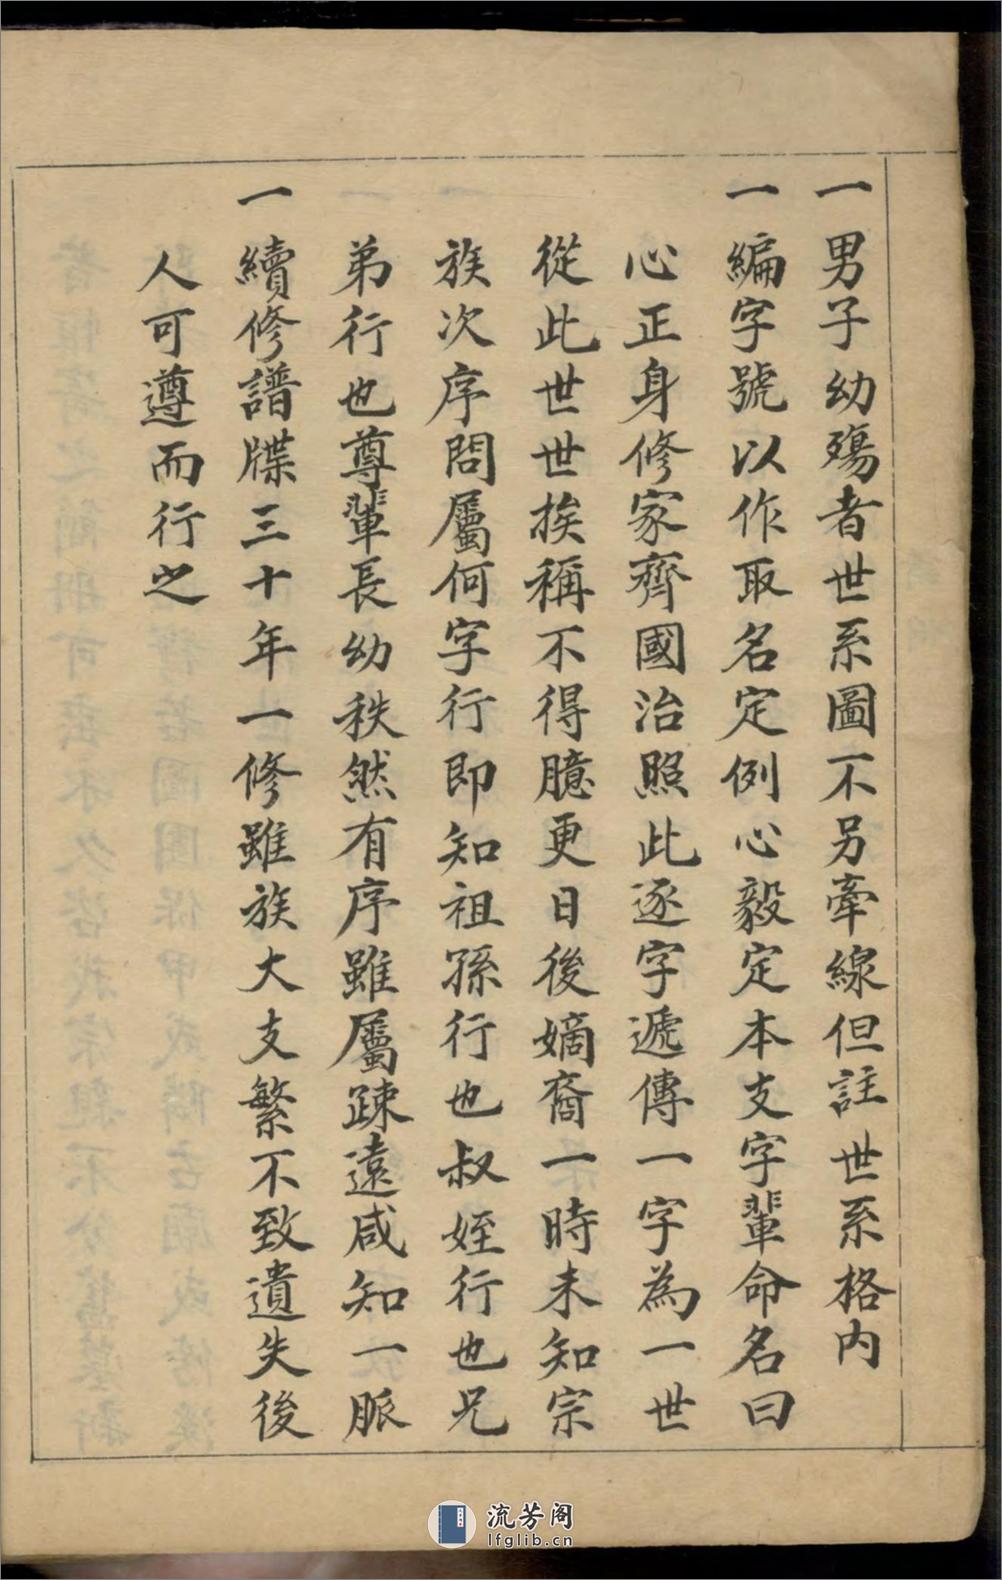 一男子幼殤者世系圖不另牽線但註世系格内
一編字號以作取名定例心毅定本支字輩命名曰
心正身修家齊國治照此逐字遞傳一字為一世
從此世世挨稱不得臆更日後嫡裔一時未知宗
族次序問屬何字行即知祖孫行也叔姪行也兄
弟行也尊輩長幼秩然有序雖屬踈遠咸知一脈
一續修譜牒三十年一修雖族大支繁不致遺失後
人可遵而行之
流芳阁
lfglib.cn